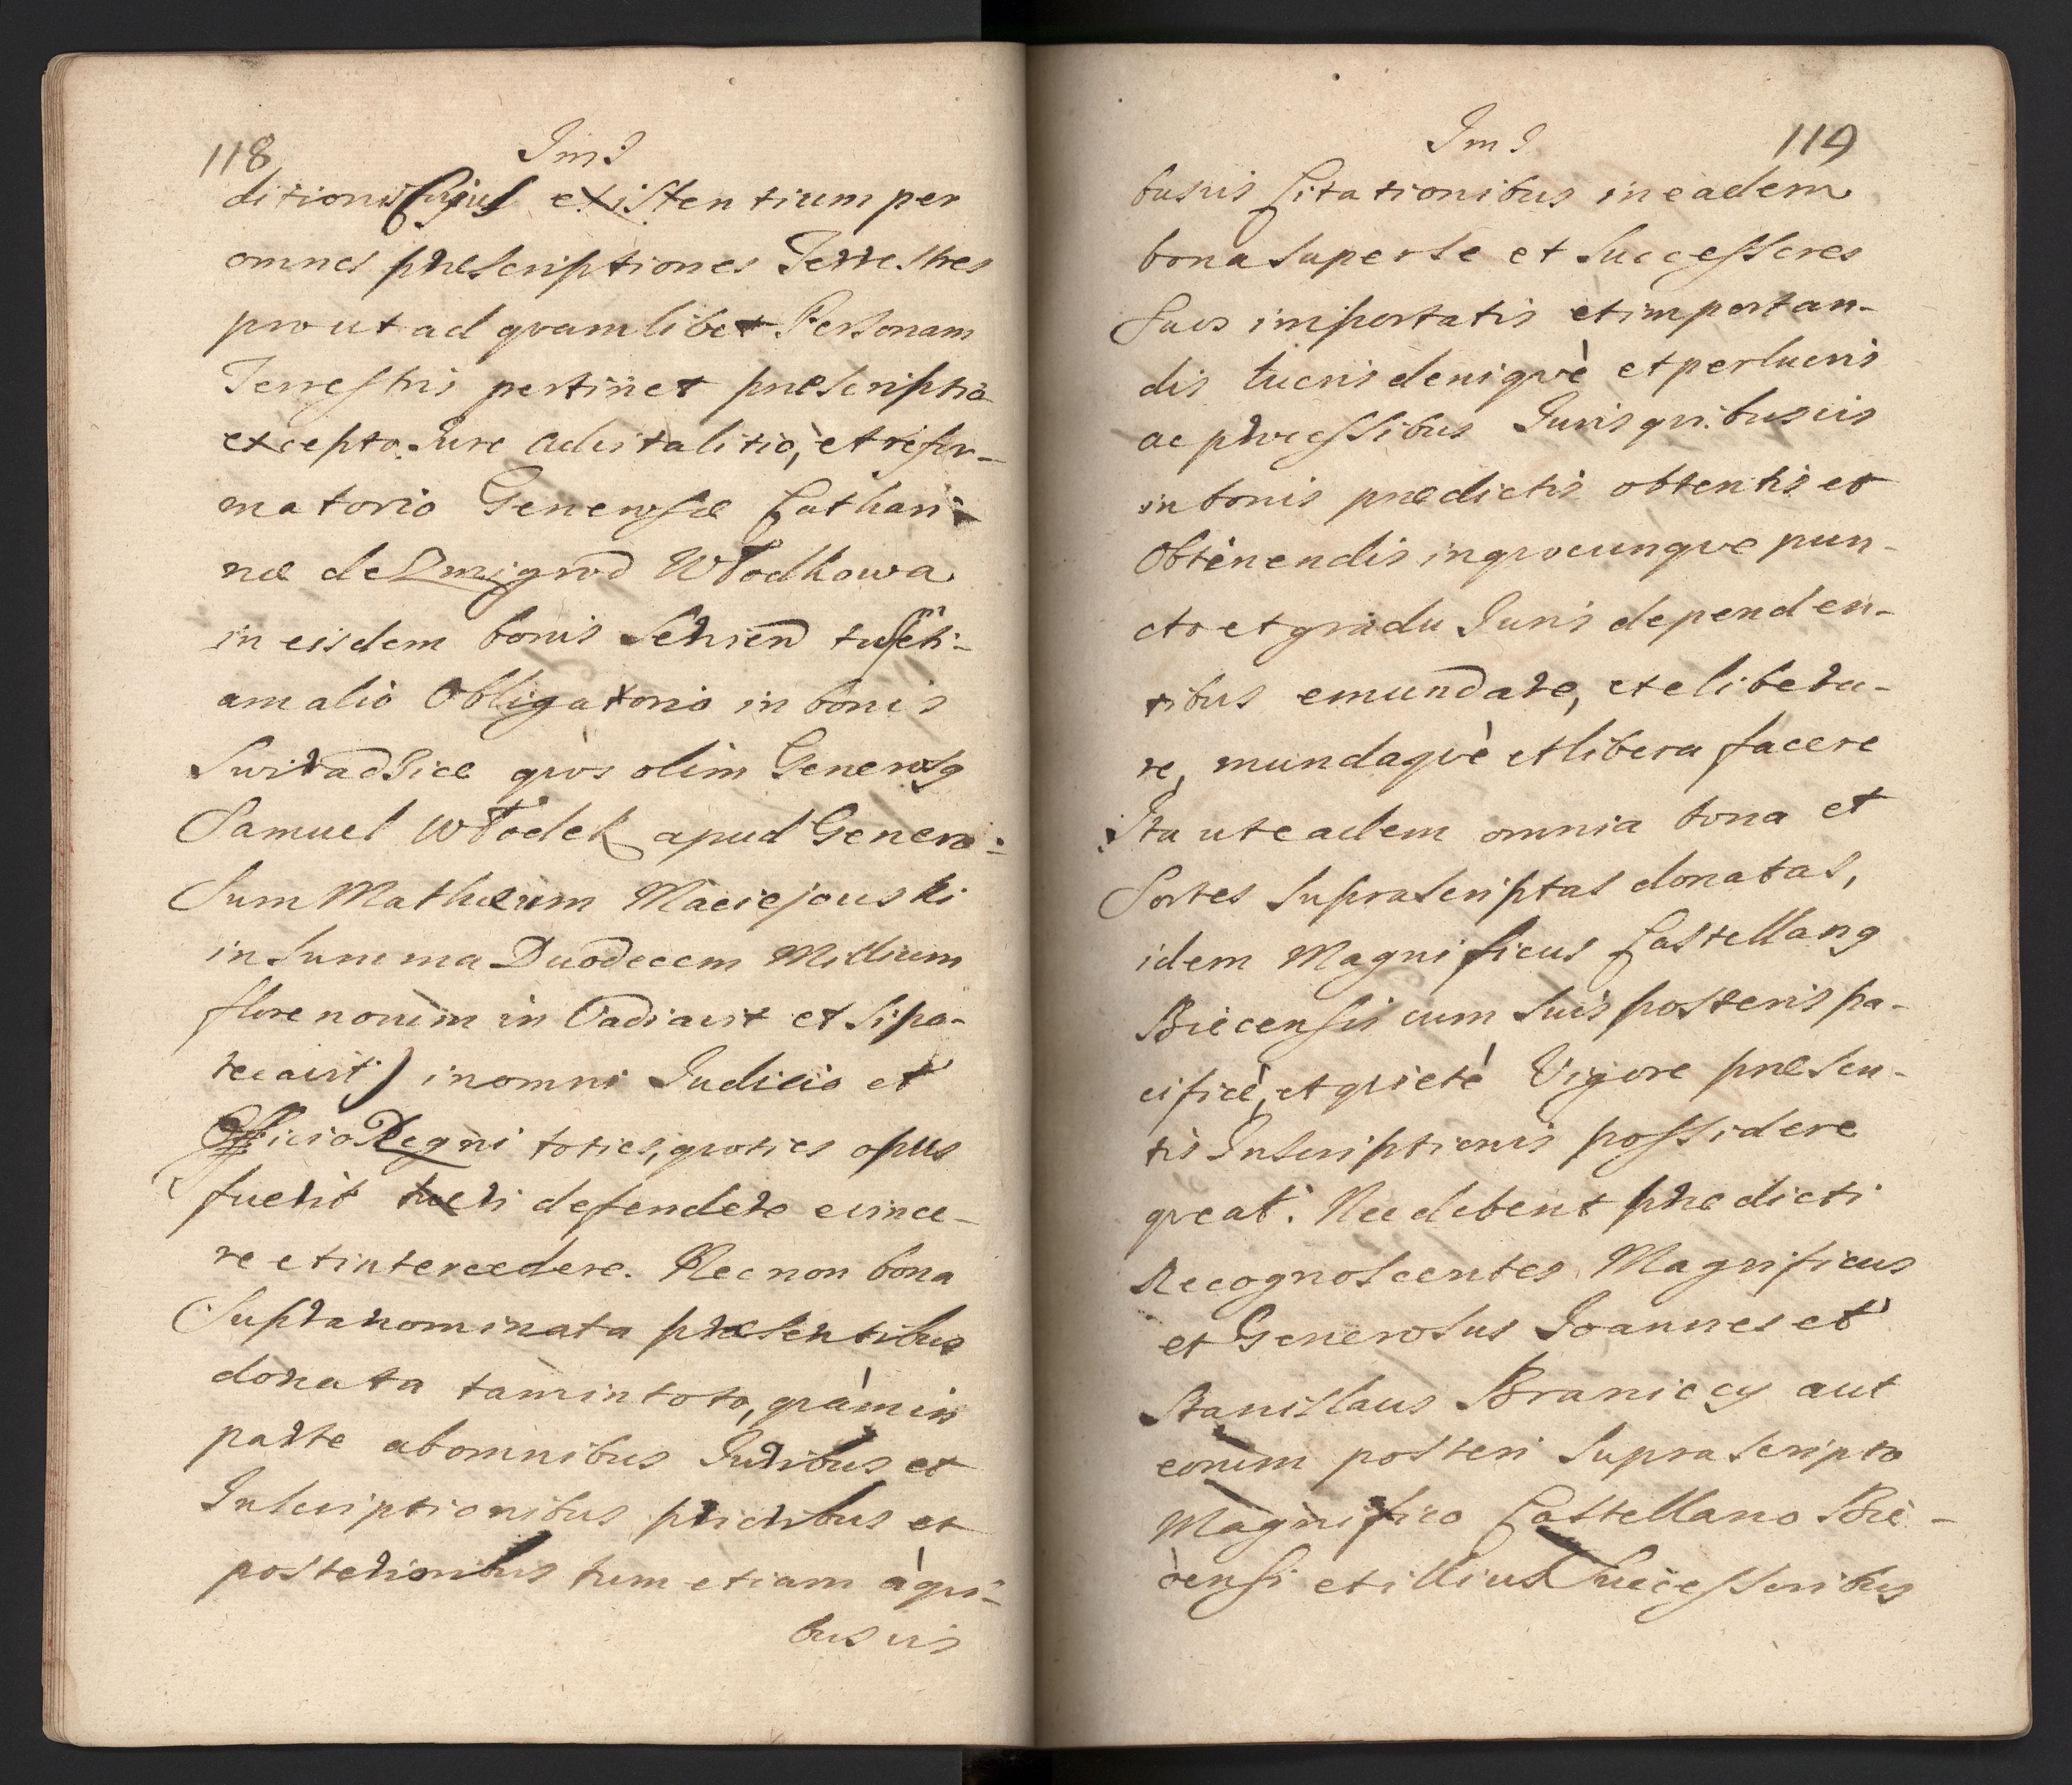 118
Im I
ditionis Cujus existentium per
omnes præscriptiones Terrestres
prout ad qvamlibet Personam
Terrestris pertinet præscriptio
excepto Jure advitalitio, et refor-
matorio Generosæ Cathari-
næ de Zmigrod Włodkowa
in eisdem bonis tu eti-
am alio Obligatorio in bonis
qvos olim Generosg
Samuel Włodek apud Genero-
sum Mathæum Maciejouski
in Summa Duodecem Millium
florenorum in Vadiavit et
tecavit) in omni Judicio et
Officio Regni toties, qvoties opus
fuerit tueri defendere evince-
re et intercedere. Nec non bona
Supranominata præsentibus
donata tam in toto, qvam in
parte ab omnibus Juribus et
Inscriptionibus prioribus et
posterioribus tum etiam à qvi-
busvis
Im I
119
busvis Citationibus in eadem
bona super se et Successores
Suos importatis et importan-
dis lucris deniqvè et per lucris
ac processibus Juris qvibusvis
in bonis prædictis obtentis et
Obtinendis in qvocunqve pun-
cto et gradu Juris dependen-
tibus emundare, et elibera-
re, mundaqvè et libera facere
Ita ut eadem omnia bona et
Sortes Suprascriptas donatas,
idem Magnificus Castellang
Biecensis cum suis posteris pa-
cificè, et qvietè Vigore præsen-
tis Inscriptionis possidere
qveat. Nec debent prædicti
Recognoscentes Magnificus
et Generosus Joannes et
Stanislaus Braniccy aut
eorum posteri Suprascripto
Magnifico Castellano Bie-
censi et illius Successoribus